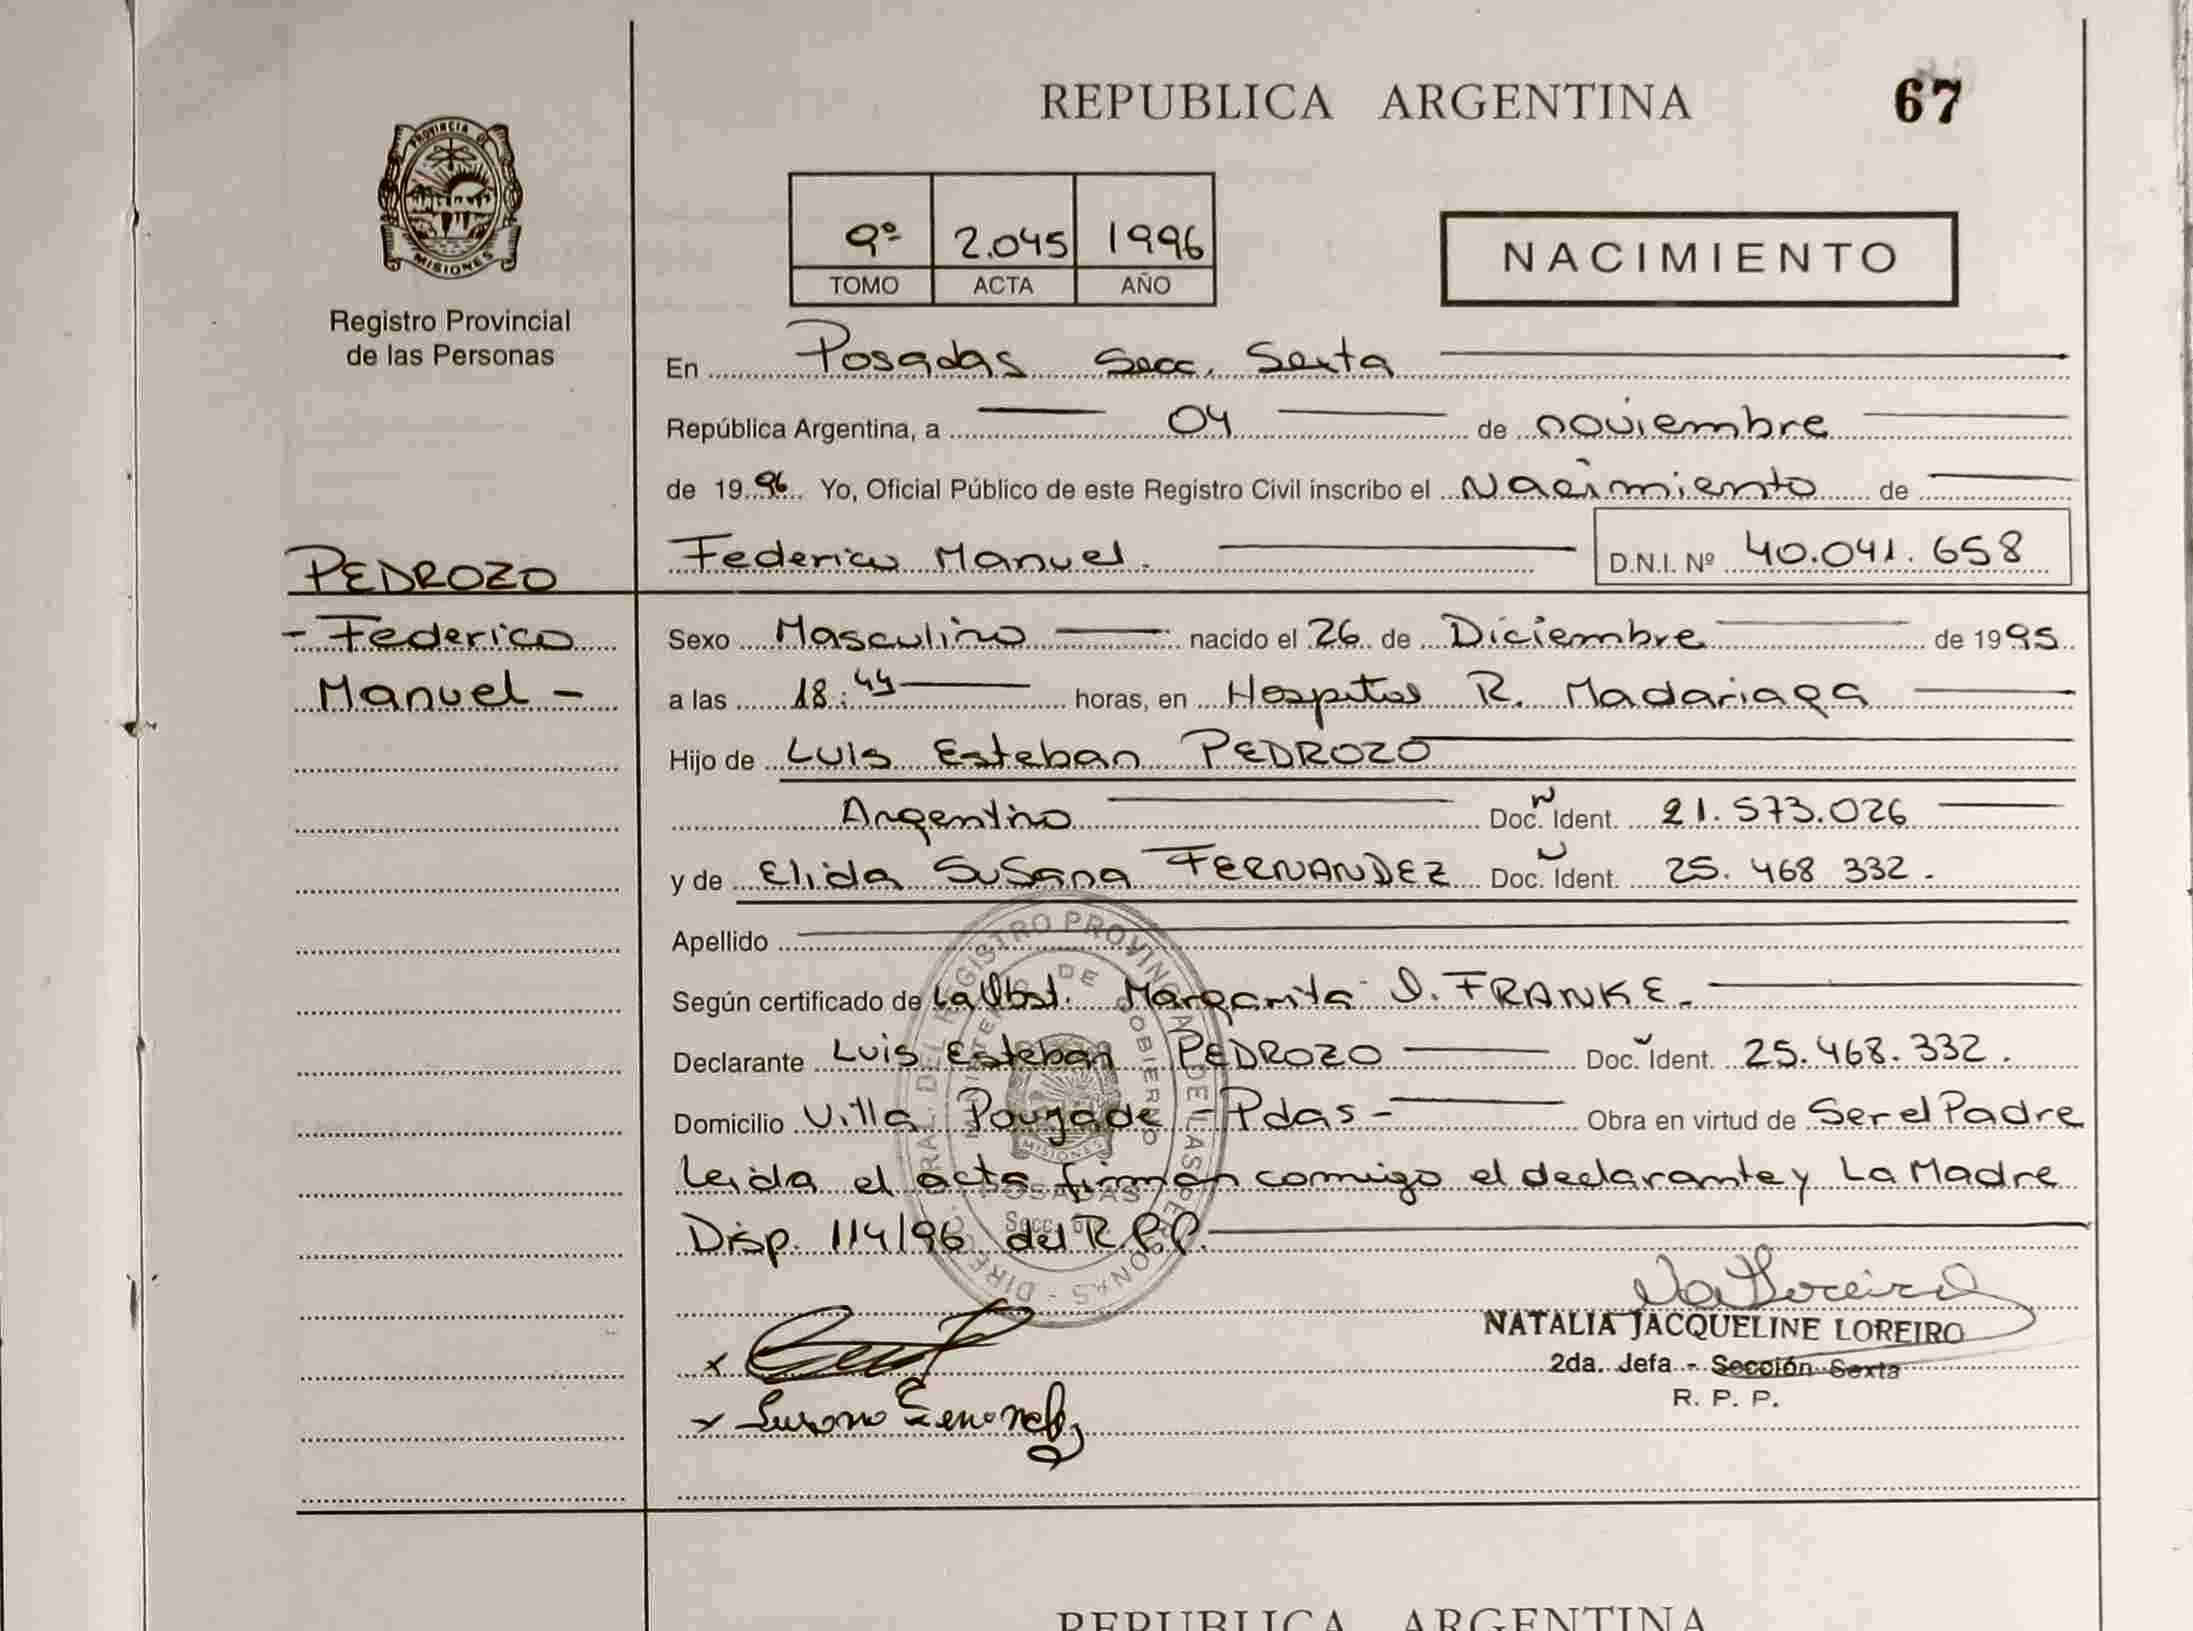 REPUBLICA ARGENTINA
67
PROVINCIA DE
MISIONES
Registro Provincial
de las Personas
9º 2.045 1996
TOMO ACTA AÑO
NACIMIENTO
En Posadas Secc. Sexta
República Argentina, a 04 de noviembre
de 1996 Yo, Oficial Público de este Registro Civil inscribo el Nacimiento de
Federico Manuel. D.N.I. Nº 40.041.658
PEDROZO
- Federico
Manuel -
Sexo Masculino nacido el 26 de Diciembre de 1995
a las 18:44 horas, en Hospital R. Madariaga
Hijo de Luis Esteban PEDROZO
Argentino Doc. Ident. 21.573.026
y de Elida Susana FERNANDEZ Doc. Ident. 25.468 332.
Apellido
Según certificado de La Obst. Margarita I. FRANKE.
Declarante Luis Esteban PEDROZO Doc. Ident. 25.468.332.
Domicilio Villa Poujade - Pdas - Obra en virtud de Ser el Padre
Leida el acta firman comigo el declarante y La Madre
Disp. 114/96 del R.P.P.
NATALIA JACQUELINE LOREIRO
2da. Jefa - Sección Sexta
R. P. P.
x
x Susana Fernandez
REPUBLICA ARGENTINA